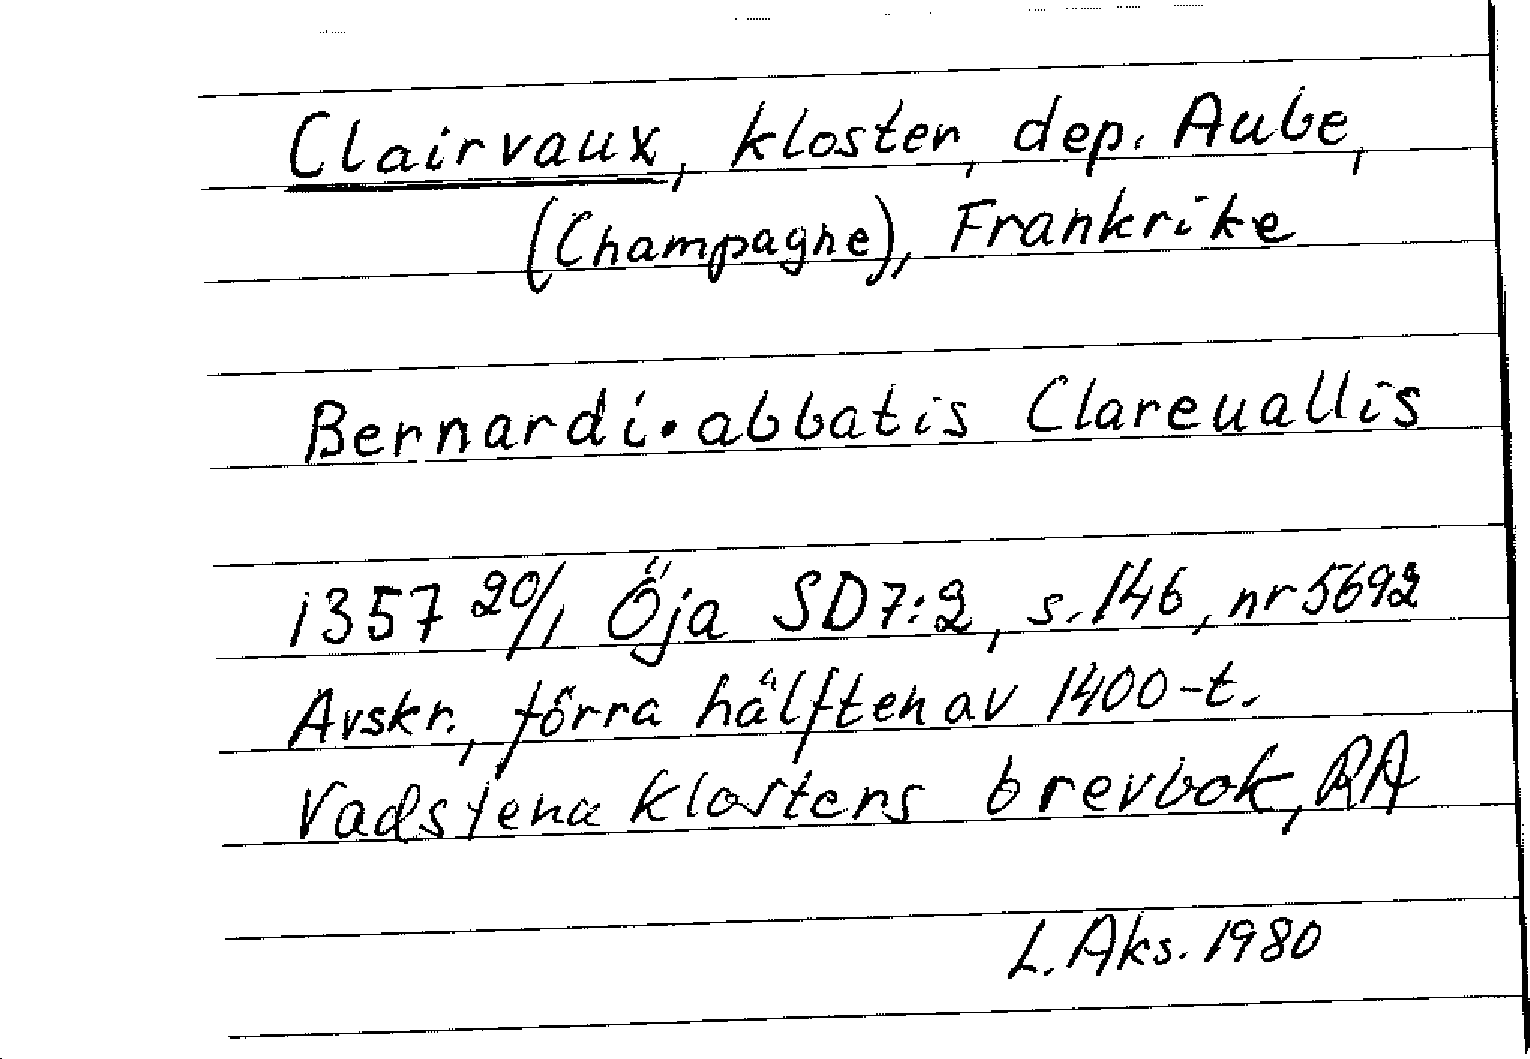 Clairvaux, kloster, dep. Aube,
(Champagne), Frankrike
Bernardi • abbatis Clareuallis
1357 20/1 Öja SD7:2, s. 146, nr 5692
Avskr., förra hälften av 1400-t.
Vadstena klosters brevbok, RA
L. Aks. 1980